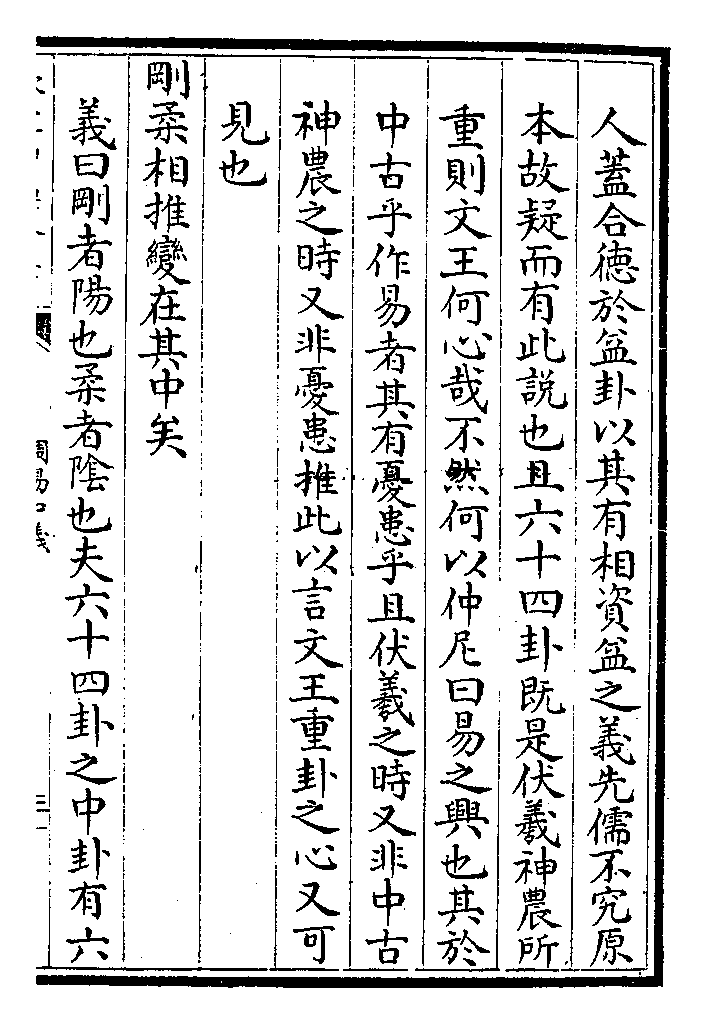 人蓋合德於益卦以其有相資益之義先儒不究原
本故疑而有此説也且六十四卦既是伏羲神農所
重則文王何心哉不然何以仲尼曰易之興也其於
中古乎作易者其有憂患乎且伏羲之時又非中古
神農之時又非憂患推此以言文王重卦之心又可
見也
剛柔相推變在其中矣
義曰剛者陽也柔者隂也夫六十四卦之中卦有六
周易口義